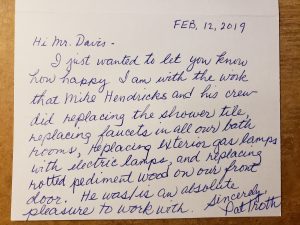 FEB. 12, 2019
Hi Mr. Davis -
I just wanted to let you know
how happy I am with the work
that Mike Hendricks and his crew
did replacing the shower tile,
replacing faucets in all our bath
rooms, replacing exterior gas lamps
with electric lamps, and replacing
rotted pediment wood on our front
door. He was/is an absolute
pleasure to work with. Sincerely,
Pat Troth